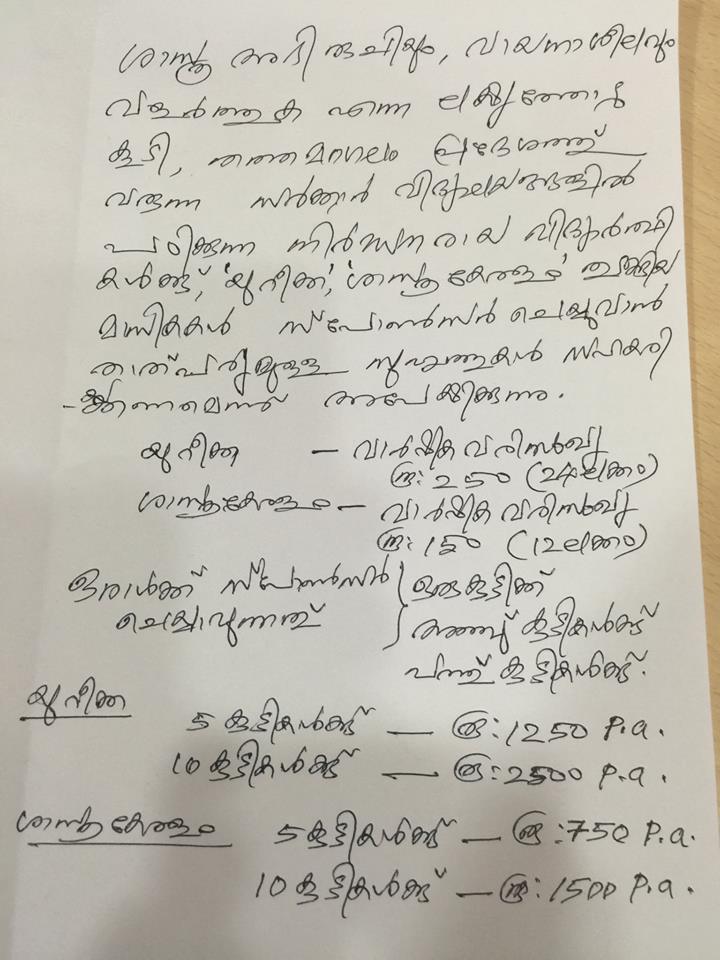 ശാസ്ത്ര അഭിരുചിയും, വായനാശീലവും
വളർത്തുക എന്ന ലക്ഷ്യത്തോടു
കൂടി, തത്തമംഗലം പ്രദേശത്ത്
വരുന്ന സർക്കാർ വിദ്യാലയങ്ങളിൽ
പഠിക്കുന്ന നിർദ്ധനരായ വിദ്യാർത്ഥി
കൾക്ക്, 'യുറീക്ക', 'ശാസ്ത്രകേരളം' തുടങ്ങിയ
മാസികകൾ സ്പോൺസർ ചെയ്യുവാൻ
താത്പര്യമുള്ള സുഹൃത്തുക്കൾ സഹകരി
-ക്കണമെന്ന് അപേക്ഷിക്കുന്നു.
യുറീക്ക — വാർഷിക വരിസംഖ്യ
രൂ: 250 (24 ലക്കം)
ശാസ്ത്രകേരളം — വാർഷിക വരിസംഖ്യ
രൂ: 150 (12 ലക്കം)
ഒരാൾക്ക് സ്പോൺസർ ചെയ്യാവുന്നത്
ഒരു കുട്ടിക്ക്
അഞ്ച് കുട്ടികൾക്ക്
പത്ത് കുട്ടികൾക്ക്.
യുറീക്ക
5 കുട്ടികൾക്ക് — രൂ: 1250 P.a.
10 കുട്ടികൾക്ക് — രൂ: 2500 P.a.
ശാസ്ത്രകേരളം 5 കുട്ടികൾക്ക് — രൂ: 750 P.a.
10 കുട്ടികൾക്ക് — രൂ: 1500 P.a.